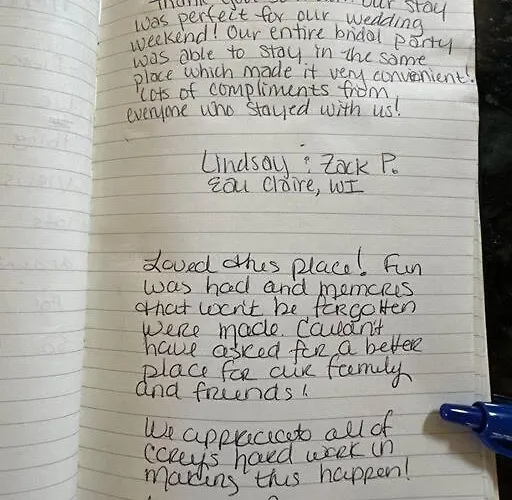 our stay
was perfect for our wedding
weekend! Our entire bridal party
was able to stay in the same
place which made it very convenient!
Lots of compliments from
everyone who stayed with us!
Lindsay & Zack P.
Eau Claire, WI
Loved this place! Fun
was had and memories
that won't be forgotten
were made. Couldn't
have asked for a better
place for our family
and friends!
We appreciate all of
Corey's hard work in
making this happen!